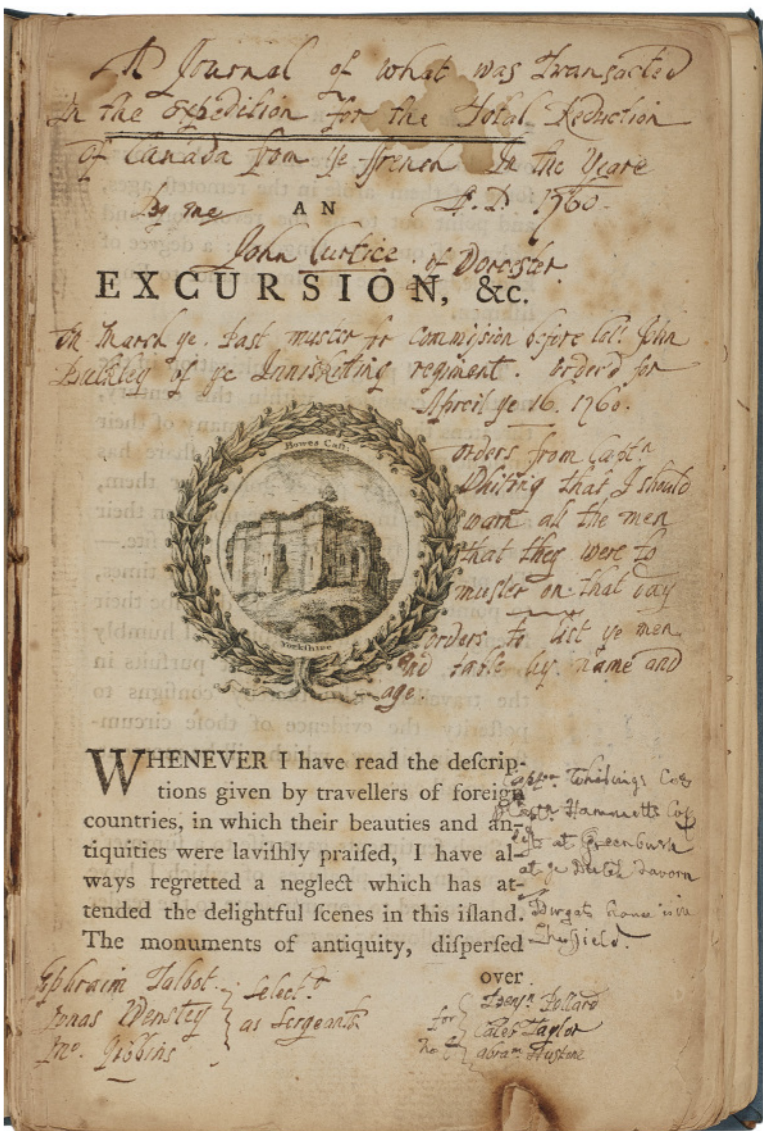 A Journal of what was Transacted
In the Expedition for the Total Reduction
of Canada from ye ffrench In the Yeare
By me
A.D. 1760.
AN
John Curtice of Dorcester
EXCURSION, &c.
March ye. Last muster for Commission before Coll. John
Bulkley of ye Inniskilling regiment. order'd for
Apreil ye 16. 1760.
Bowes Cast.
Yorkshire
orders from Captn
Whiting that I should
warn all the men
that they were to
muster on that day
orders to list ye men
and table by name and
age.
WHENEVER I have read the deſcrip-
tions given by travellers of foreign
countries, in which their beauties and an-
tiquities were laviſhly praiſed, I have al-
ways regretted a neglect which has at-
tended the delightful ſcenes in this iſland.
The monuments of antiquity, diſperſed
over
Whitings Co
Captn. Hammetts Co
at Greenbush
at ye Dutch Tavorn
house is in
Sheffield.
Ephraim Talbot
Jonas Wensley
Jno. Gibbins
Select.d
as Sergeants
for
Pollard
Caleb Taylor
Abram Hustone